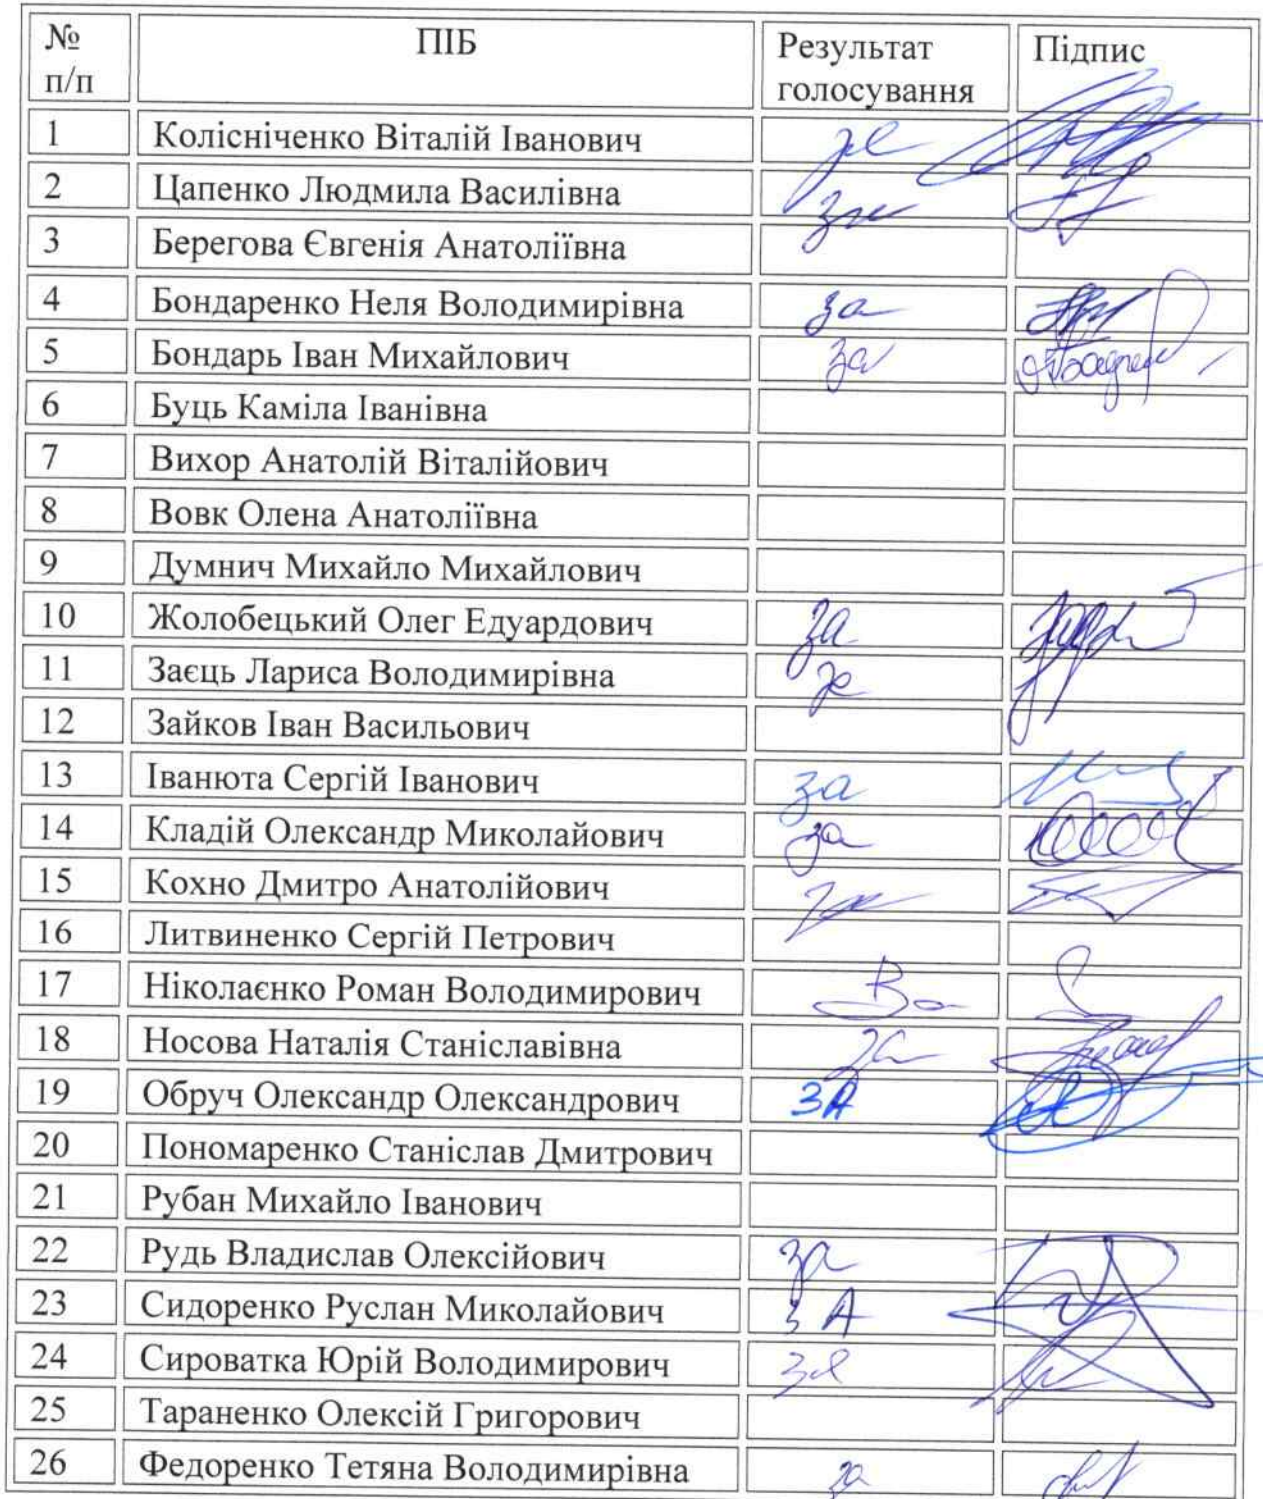 № п/п ПІБ Результат голосування Підпис
1 Колісніченко Віталій Іванович за
2 Цапенко Людмила Василівна за
3 Берегова Євгенія Анатоліївна
4 Бондаренко Неля Володимирівна за
5 Бондарь Іван Михайлович за
6 Буць Каміла Іванівна
7 Вихор Анатолій Віталійович
8 Вовк Олена Анатоліївна
9 Думнич Михайло Михайлович
10 Жолобецький Олег Едуардович за
11 Заєць Лариса Володимирівна за
12 Зайков Іван Васильович
13 Іванюта Сергій Іванович за
14 Кладій Олександр Миколайович за
15 Кохно Дмитро Анатолійович за
16 Литвиненко Сергій Петрович
17 Ніколаєнко Роман Володимирович За
18 Носова Наталія Станіславівна за
19 Обруч Олександр Олександрович ЗА
20 Пономаренко Станіслав Дмитрович
21 Рубан Михайло Іванович
22 Рудь Владислав Олексійович за
23 Сидоренко Руслан Миколайович за
24 Сироватка Юрій Володимирович за
25 Тараненко Олексій Григорович
26 Федоренко Тетяна Володимирівна за